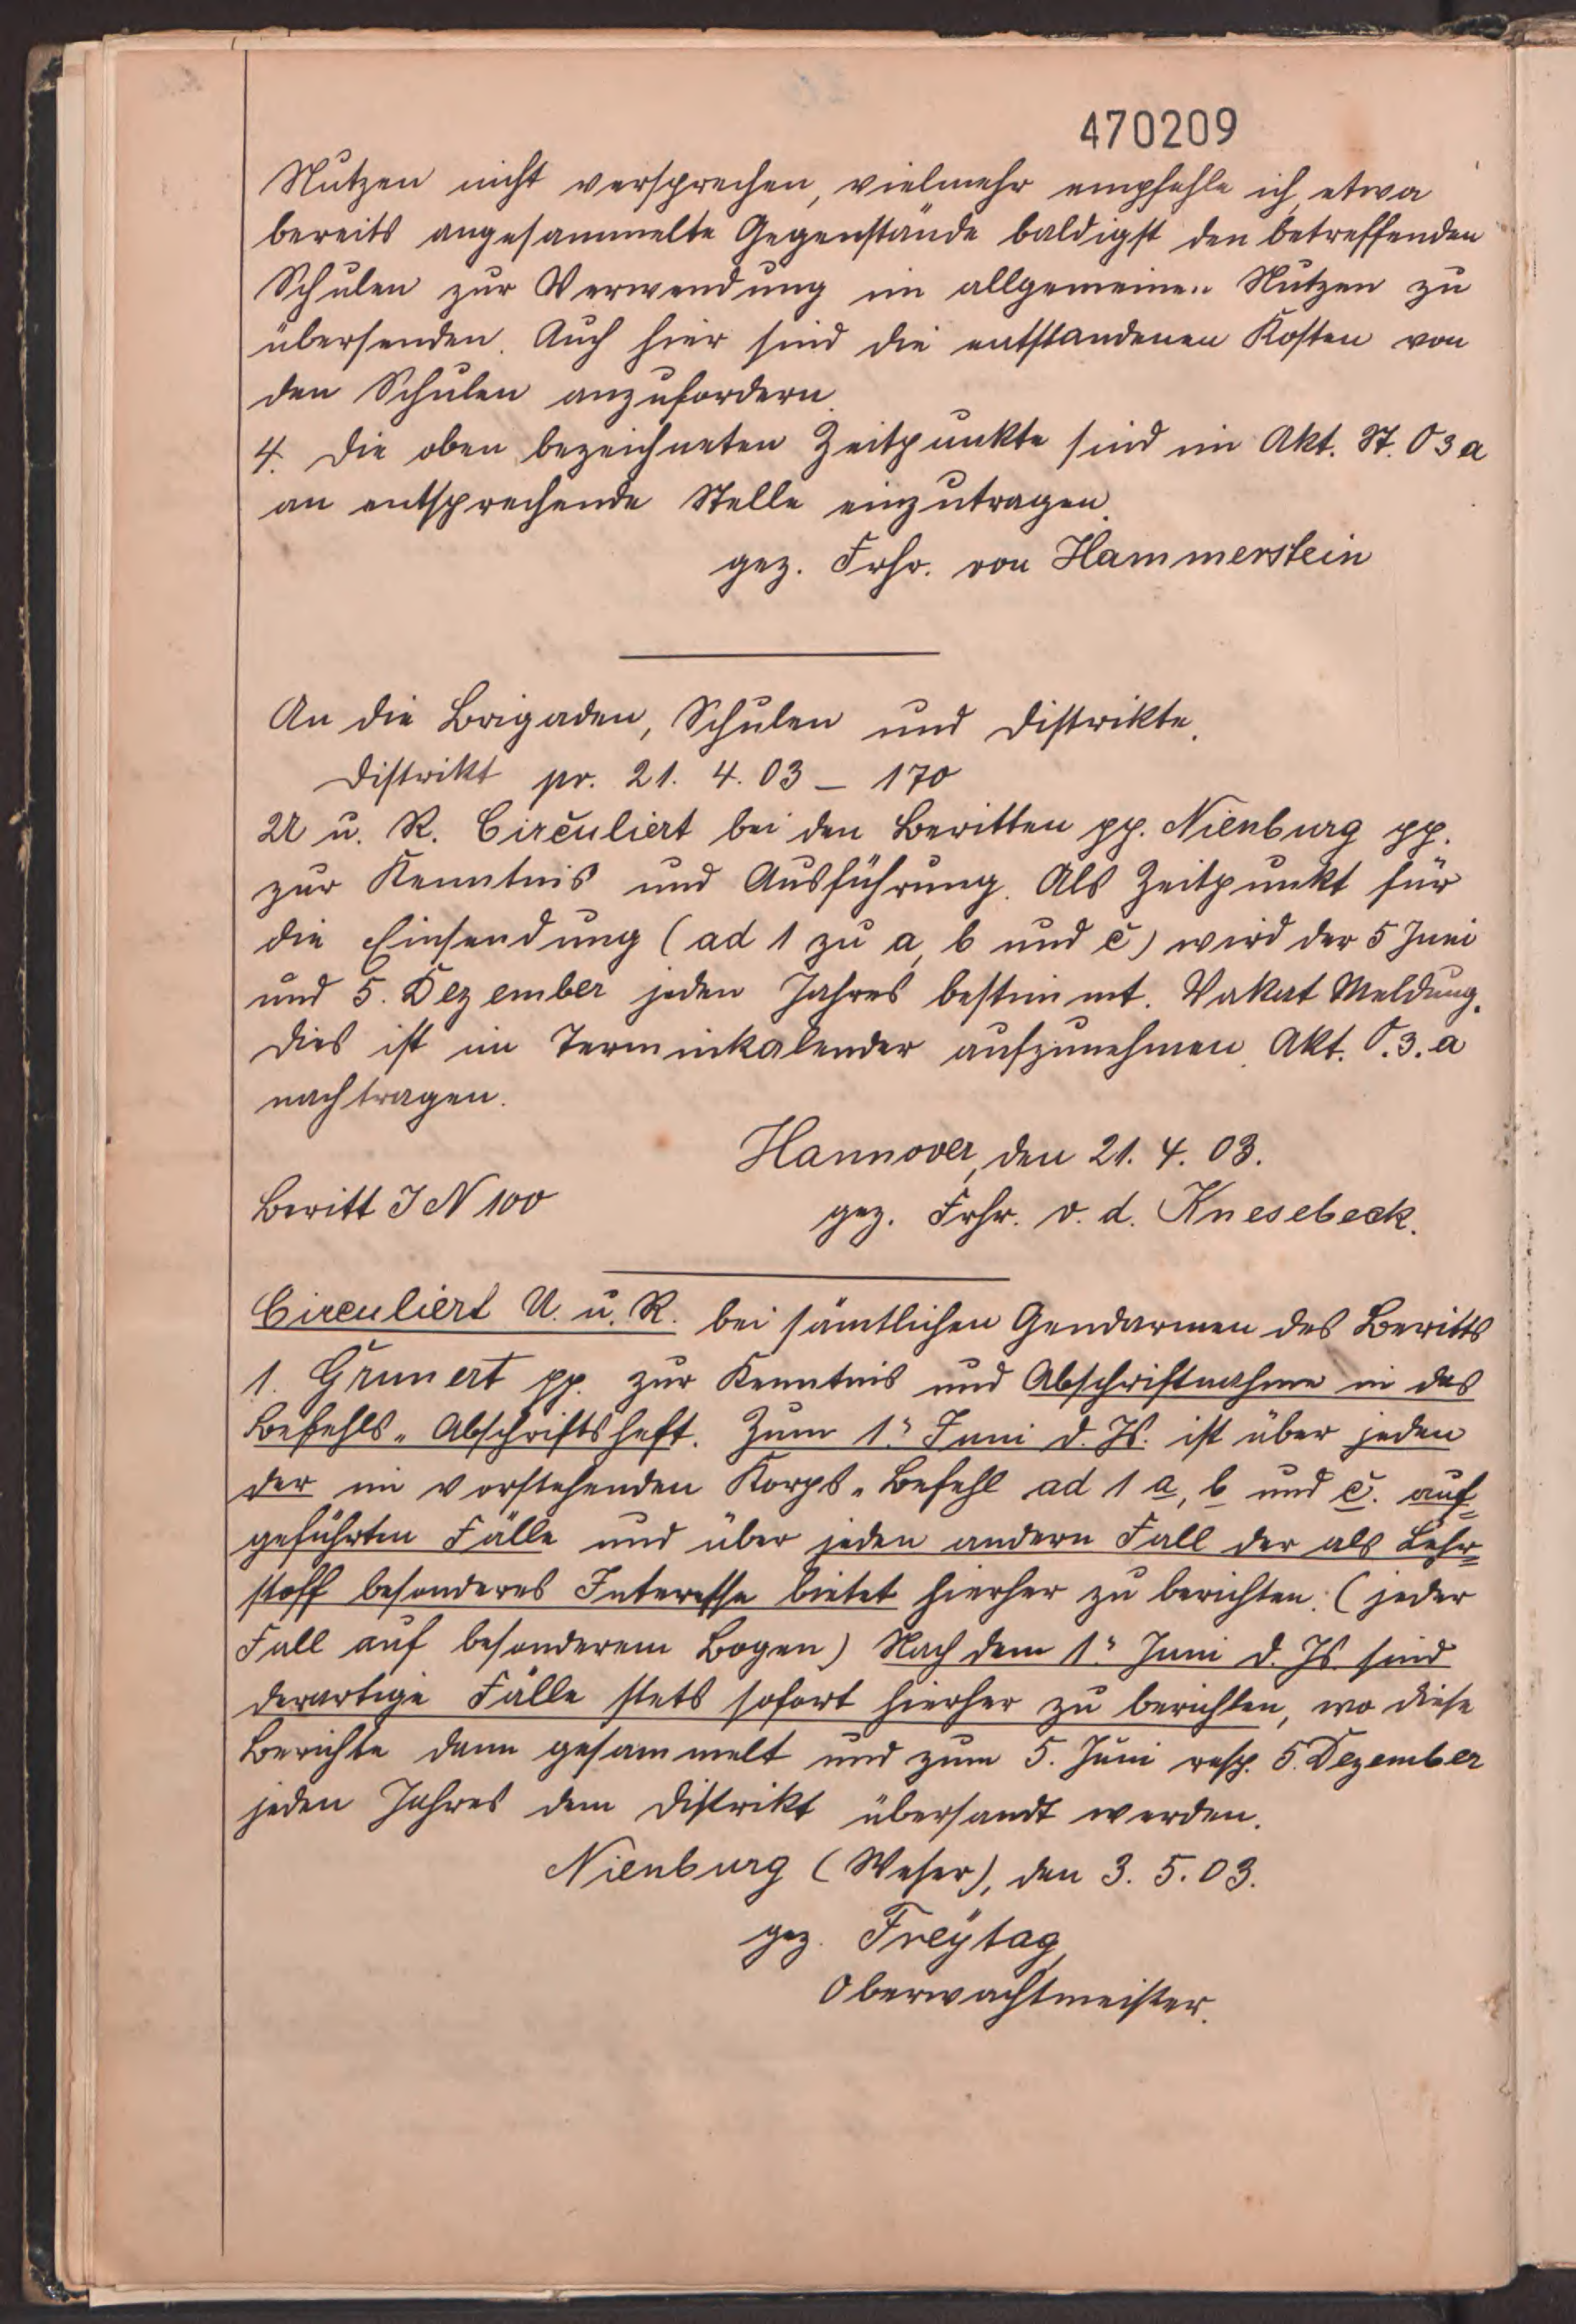 470209
Nutzen nicht versprechen, vielmehr empfehle ich, etwa
bereits angesammelte Gegenstände baldigst den betreffenden
Schulen zur Verwendung im allgemeinen Nutzen zu
übersenden. Auch hier sind die entstandenen Kosten von
den Schulen anzufordern.
4. Die oben bezeichneten Zeitpunkte sind im Akt. St. O 3 a
an entsprechende Stelle einzutragen.
gez. Frhr. von Hammerstein
An die Brigaden, Schulen und Distrikte.
Distrikt pr. 21. 4. 03 – 170
U u. R. Circuliert bei den Beritten pp. Nienburg pp.
zur Kenntnis und Ausführung. Als Zeitpunkt für
die Einsendung (ad 1 zu a, b und c) wird der 5 Juni
und 5. Dezember jeden Jahres bestimmt. Vakat Meldung.
Dies ist im Terminkalender aufzunehmen. Akt. O. 3. a
nachtragen.
Hannover, den 21. 4. 03.
Beritt J N 100
gez. Frhr. v. d. Knesebeck.
Circuliert U. u. R. bei sämtlichen Gendarmen des Beritts
1. Grunert pp. zur Kenntnis und Abschriftnahme in das
Befehls-Abschriftsheft. Zum 1. Juni d. Js. ist über jeden
der im vorstehenden Korps-Befehl ad 1 a, b und c. auf=
geführten Fälle und über jeden andern Fall der als Lehr=
stoff besonderes Interesse bietet hierher zu berichten. (jeder
Fall auf besonderem Bogen) Nach dem 1. Juni d. Js. sind
derartige Fälle stets sofort hierher zu berichten, wo diese
Berichte dann gesammelt und zum 5. Juni resp. 5. Dezember
jeden Jahres dem Distrikt übersandt werden.
Nienburg (Weser), den 3. 5. 03.
gez. Freytag,
Oberwachtmeister.